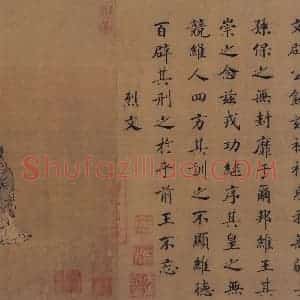 文辟公
孫保之無封靡于爾邦維王其
崇之念茲戎功繼序其皇之無
競維人四方其訓之不顯維德
百辟其刑之於乎前王不忘
烈文
ShufaZiliao.COM